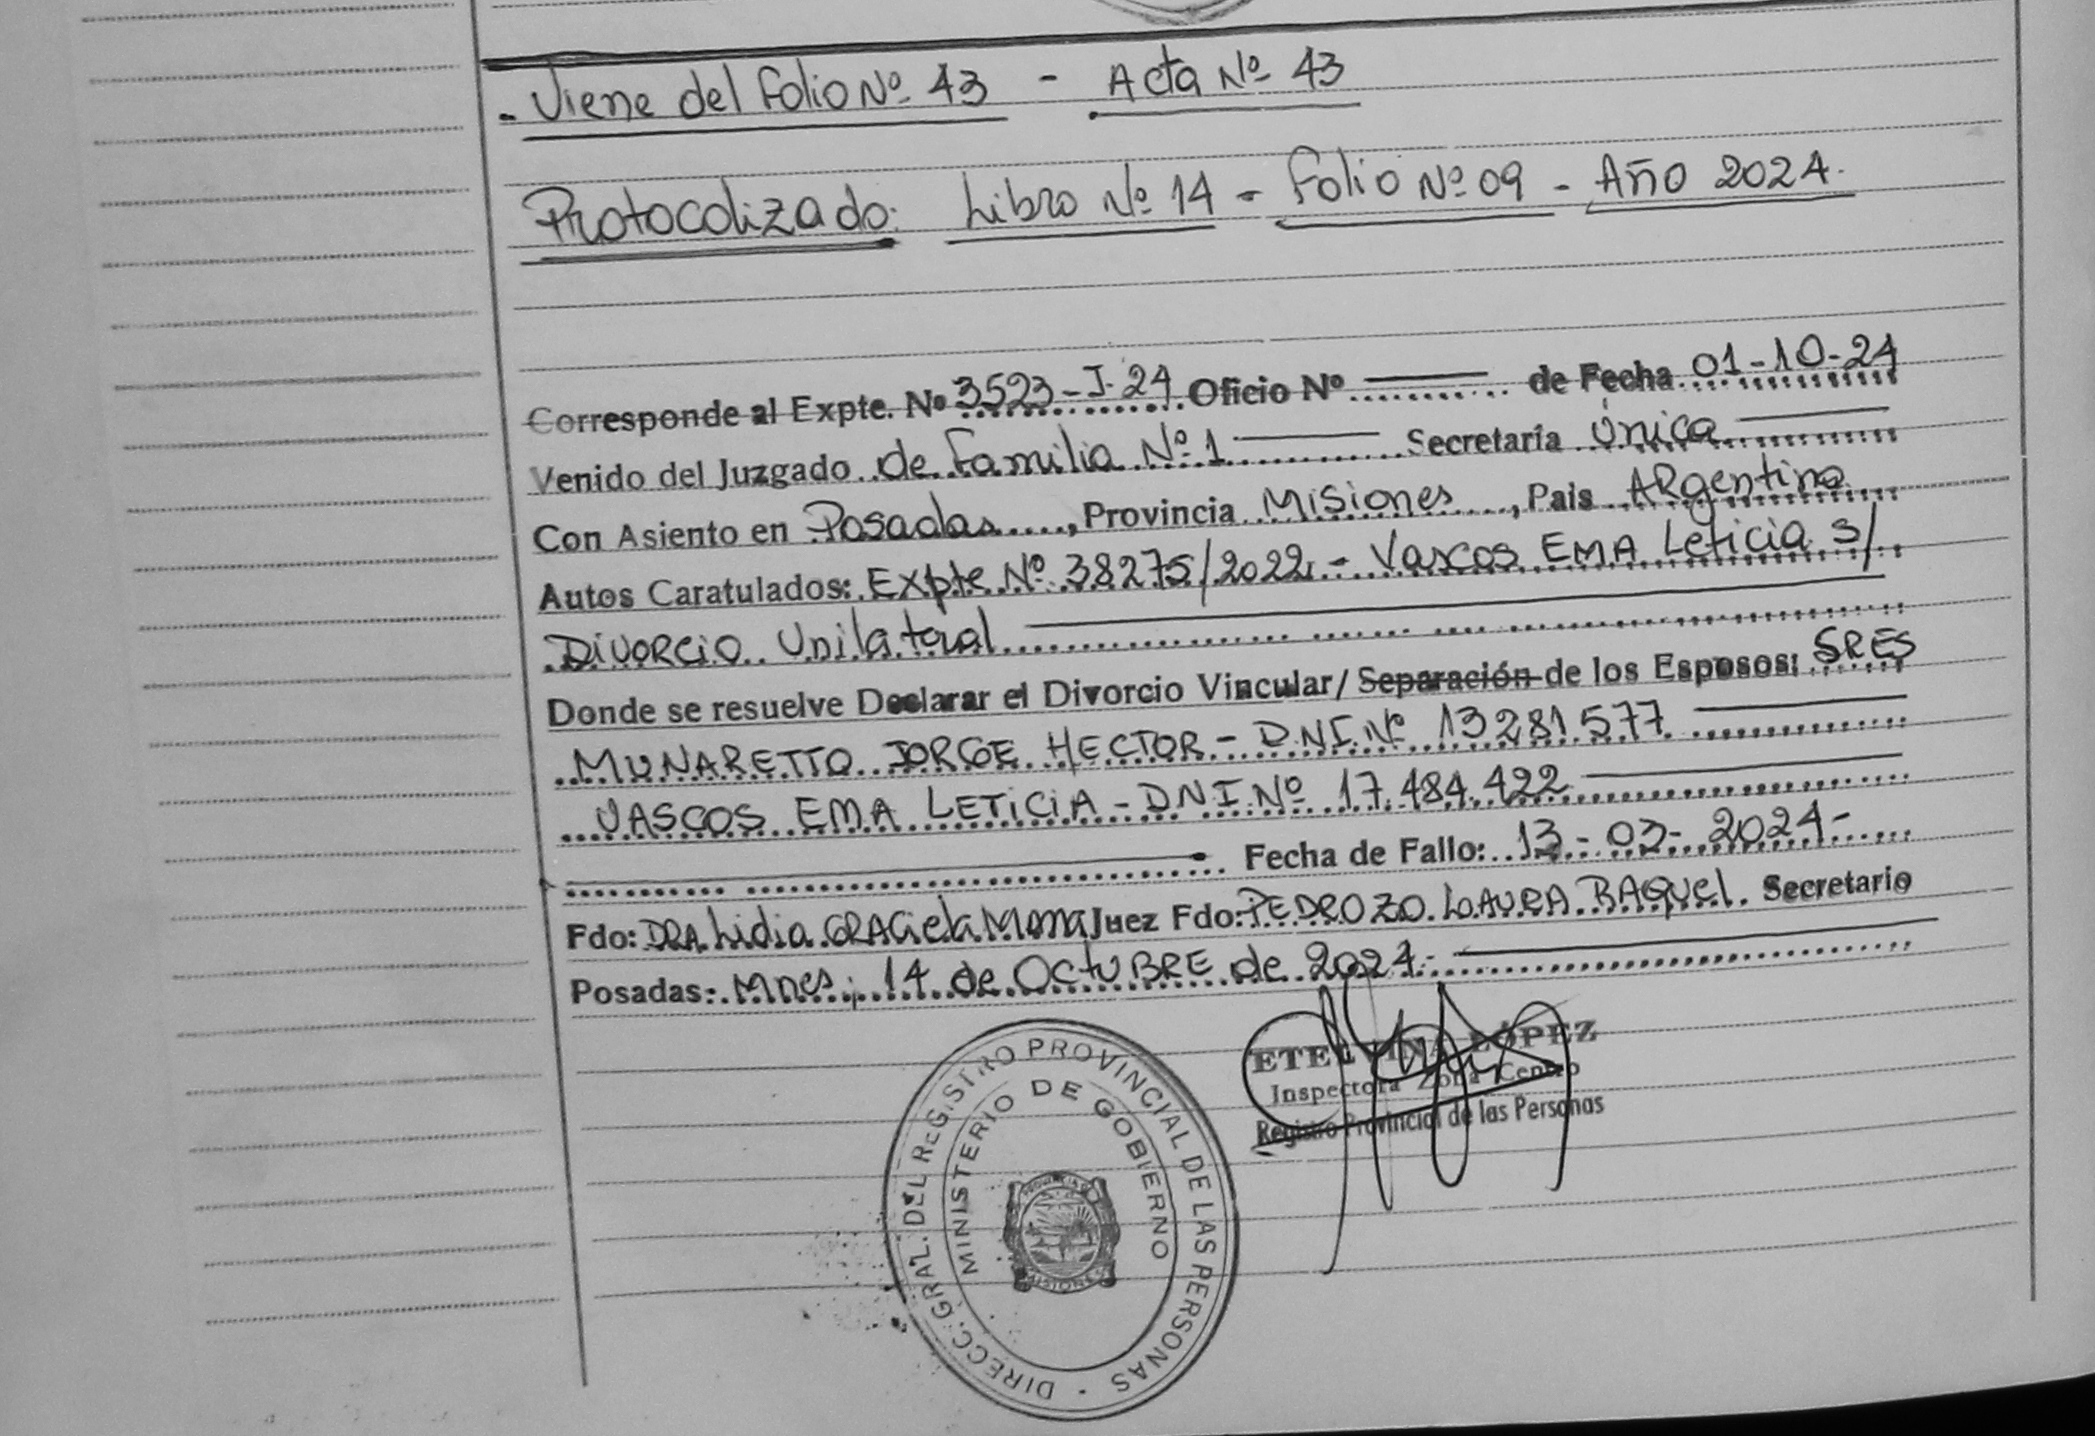 - Viene del Folio Nº 43 - Acta Nº 43
Protocolizado: Libro Nº 14 - Folio Nº 09 - Año 2024.
Corresponde al Expte. Nº 3523-J-24 Oficio Nº de Fecha 01-10-24
Venido del Juzgado de Familia Nº 1 Secretaría Única
Con Asiento en Posadas, Provincia Misiones, Pais Argentina
Autos Caratulados: Expte Nº 38275/2022 - Vascos EMA Leticia S/
Divorcio Unilateral
Donde se resuelve Declarar el Divorcio Vincular/ Separación de los Esposos: SRES
MUNARETTO JORGE HECTOR - D.N.I. Nº 13281.577
VASCOS EMA LETICIA - DNI Nº 17.484.422
Fecha de Fallo: 13 - 03 - 2024 -
Fdo: DRA. Lidia GRACiela Juez Fdo: PEDROZO LAURA RAQUEL. Secretario
Posadas: Mnes; 14 de OCTUBRE de 2024.-
ETELVINA LÓPEZ
Inspectora Zona Centro
Registro Provincial de las Personas
DIRECC. GRAL. DEL REGISTRO PROVINCIAL DE LAS PERSONAS
MINISTERIO DE GOBIERNO
MISIONES